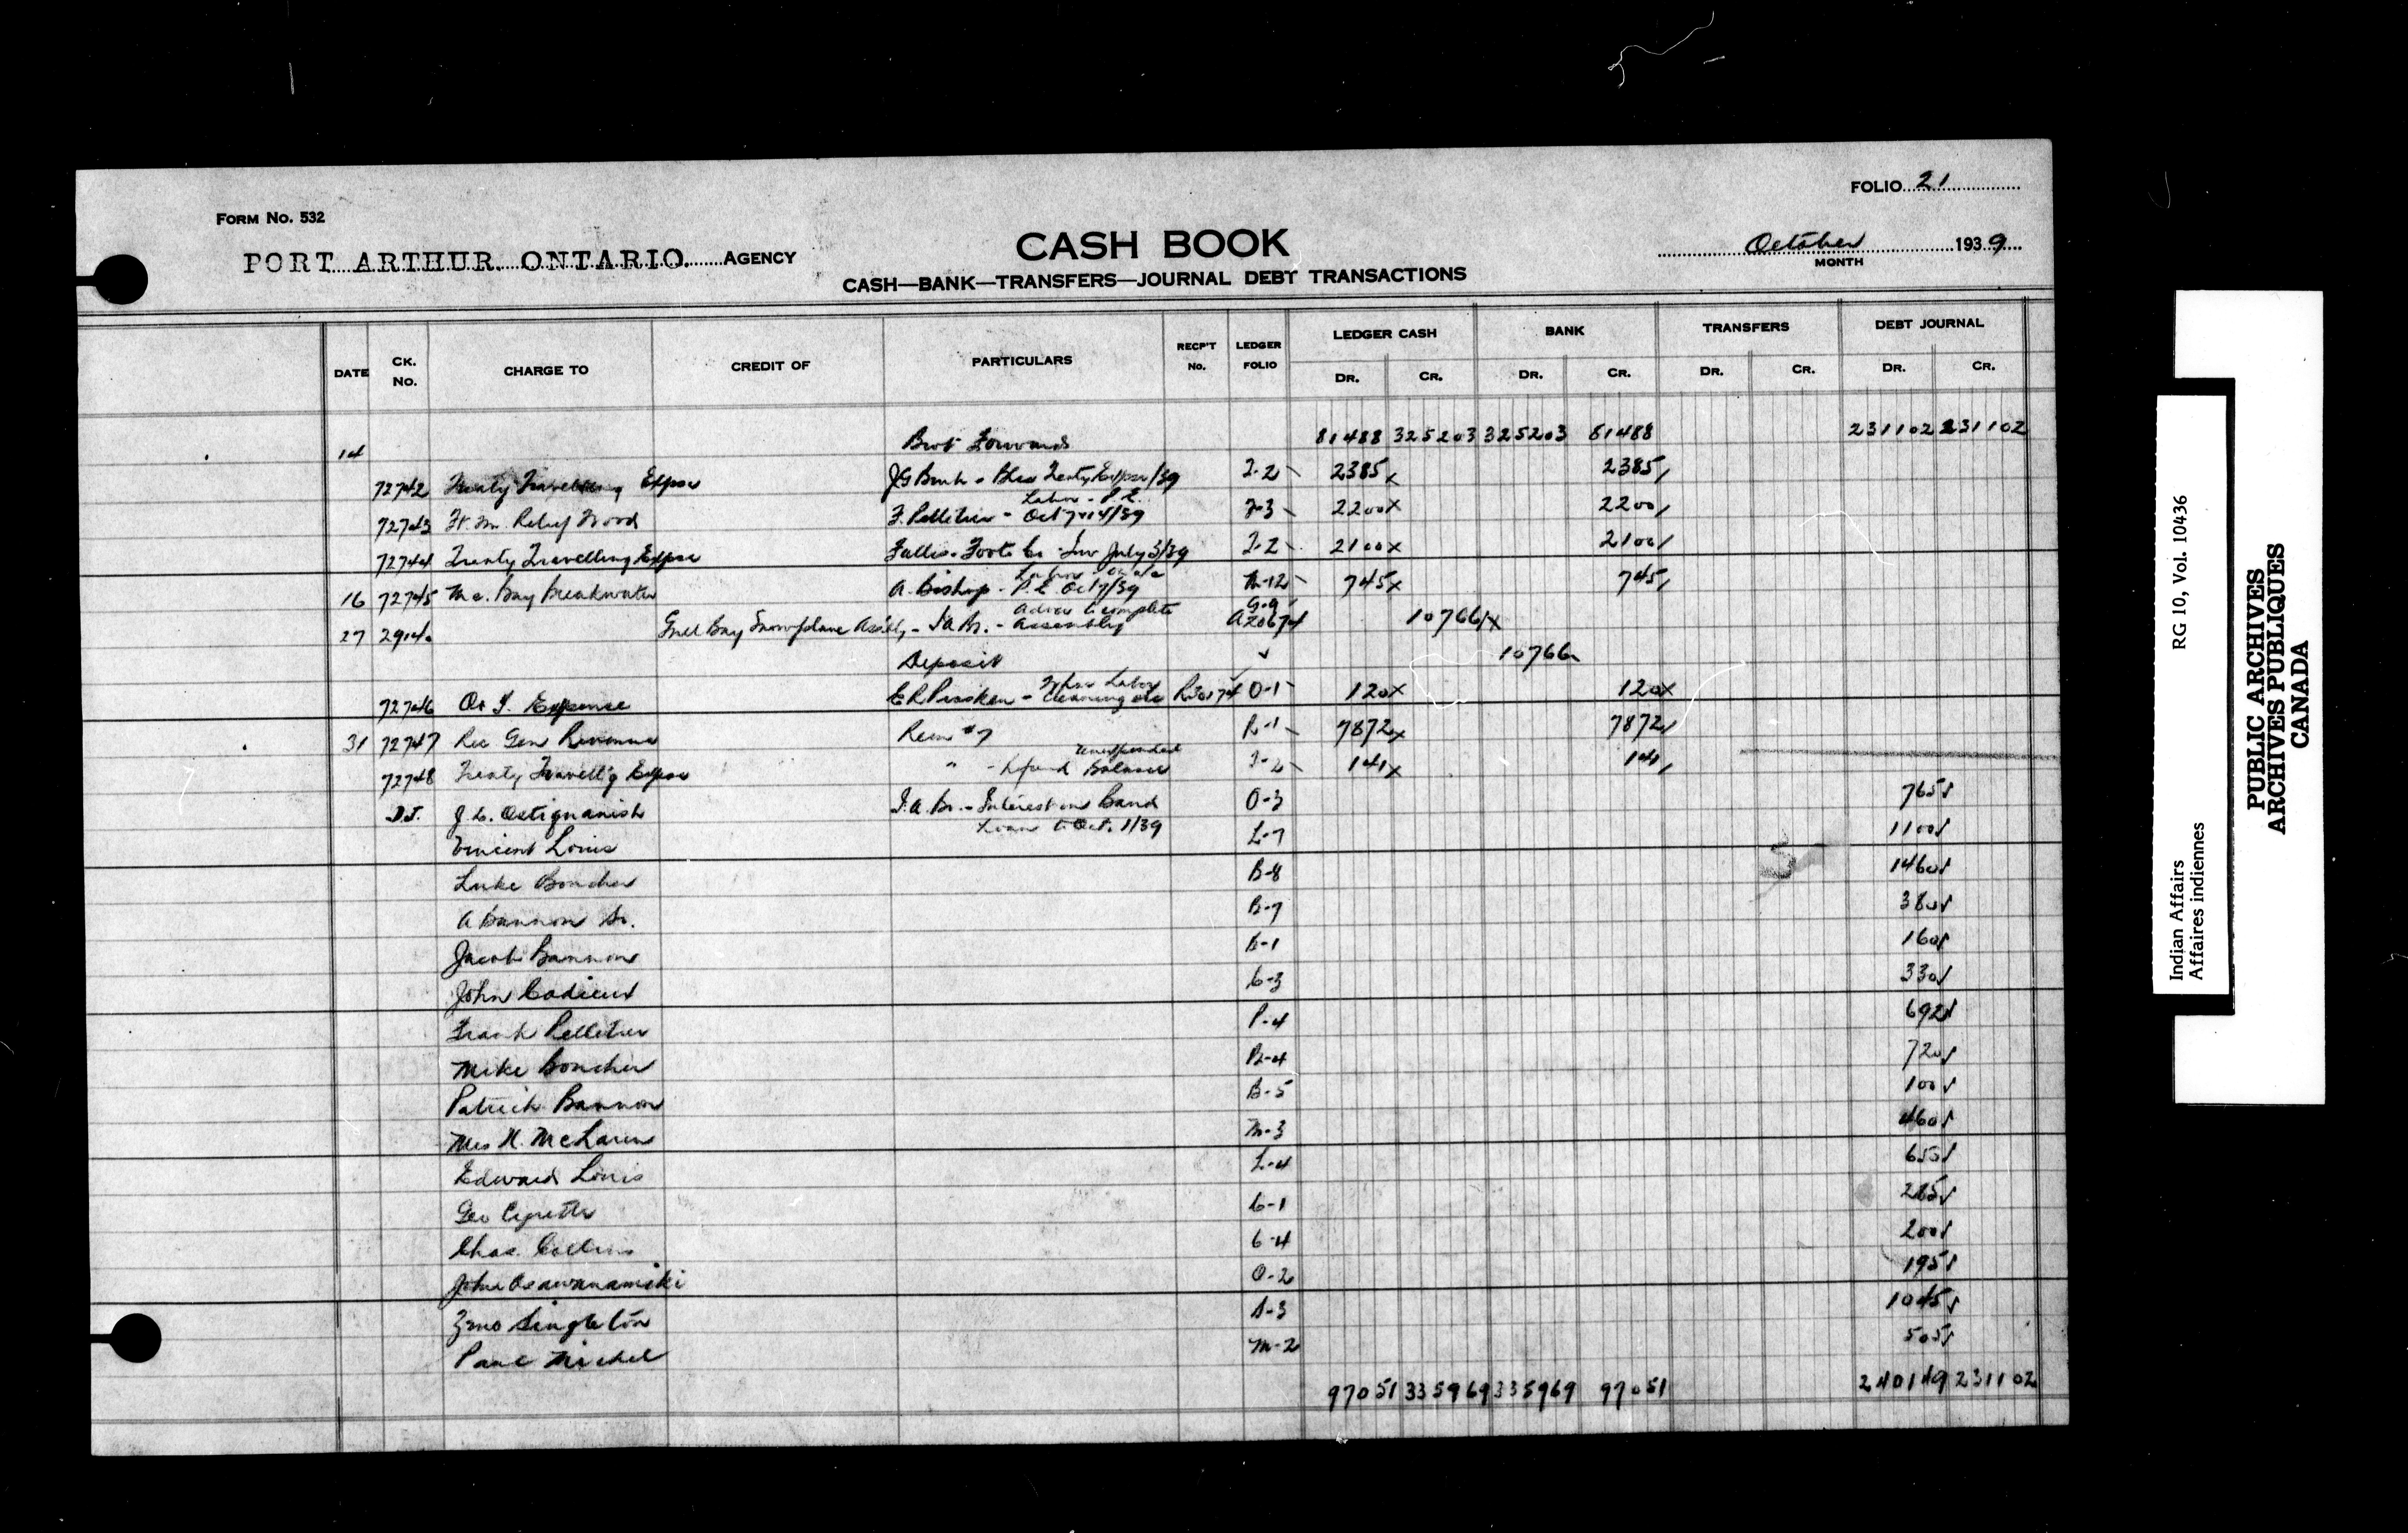 FOLIO 21
FORM NO. 532
CASH BOOK
PORT ARTHUR. ONTARIO. AGENCY
October 1939
MONTH
CASH—BANK—TRANSFERS—JOURNAL DEBT TRANSACTIONS
DATE CK. No. CHARGE TO CREDIT OF PARTICULARS RECP'T No. LEDGER FOLIO LEDGER CASH BANK TRANSFERS DEBT JOURNAL
DR. CR. DR. CR. DR. CR. DR. CR.
14 Brot Forward 81488 325203 325203 81488 231102 231102
72742 Treaty Travelling Expse J G Burk - Treaty Expse/39 T-2 2385 2385
Labor - P.L.
72743 Ft. Wm. Relief Wood F. Pelletier - Oct 7 & 14/39 F-3 2200 2200
72744 Treaty Travelling Expse Fallis-Foote Co - Inv July 3/39 T-2 2100 2100
16 72745 Mc. Bay Breakwater A. Bishop - P.L. Oct 7/39 M-12 745 745
Advce to complete G-9
27 2914 Gull Bay Snowplane Ass'bly - I.A.Br. - Assembly A20674 10766
Deposit 10766
Labor
72746 O. F. Expense Cleaning etc R30174 O-1 120 120
31 72747 Rec Gen Revenue Rem #7 R-1 7872 7872
Unexpended
72748 Treaty Travell'g Expse " - Refund Balance T-2 141 141
D.J. J. L. Ostiguanish I.A.Br. - Interest on Band O-3 765
Loans to Oct. 1/39
Vincent Louis L-7 1100
Luke Boucher B-8 1460
A Bannon Sr. B-7 380
Jacob Bannon B-1 160
John Cadieux C-3 330
Frank Pelletier P-4 692
Mike Boucher B-4 720
Patrick Bannon B-5 100
Mrs N. McLaren M-3 460
Edward Louis L-4 655
Geo Cyrette C-1 285
Chas. Collins C-4 200
John Osawanamiki O-2 195
Singleton S-3 1045
Paul Michel M-2 505
97051 335969 335969 97051 240149 231102
Indian Affairs RG 10, Vol. 10436
Affaires indiennes
PUBLIC ARCHIVES
ARCHIVES PUBLIQUES
CANADA